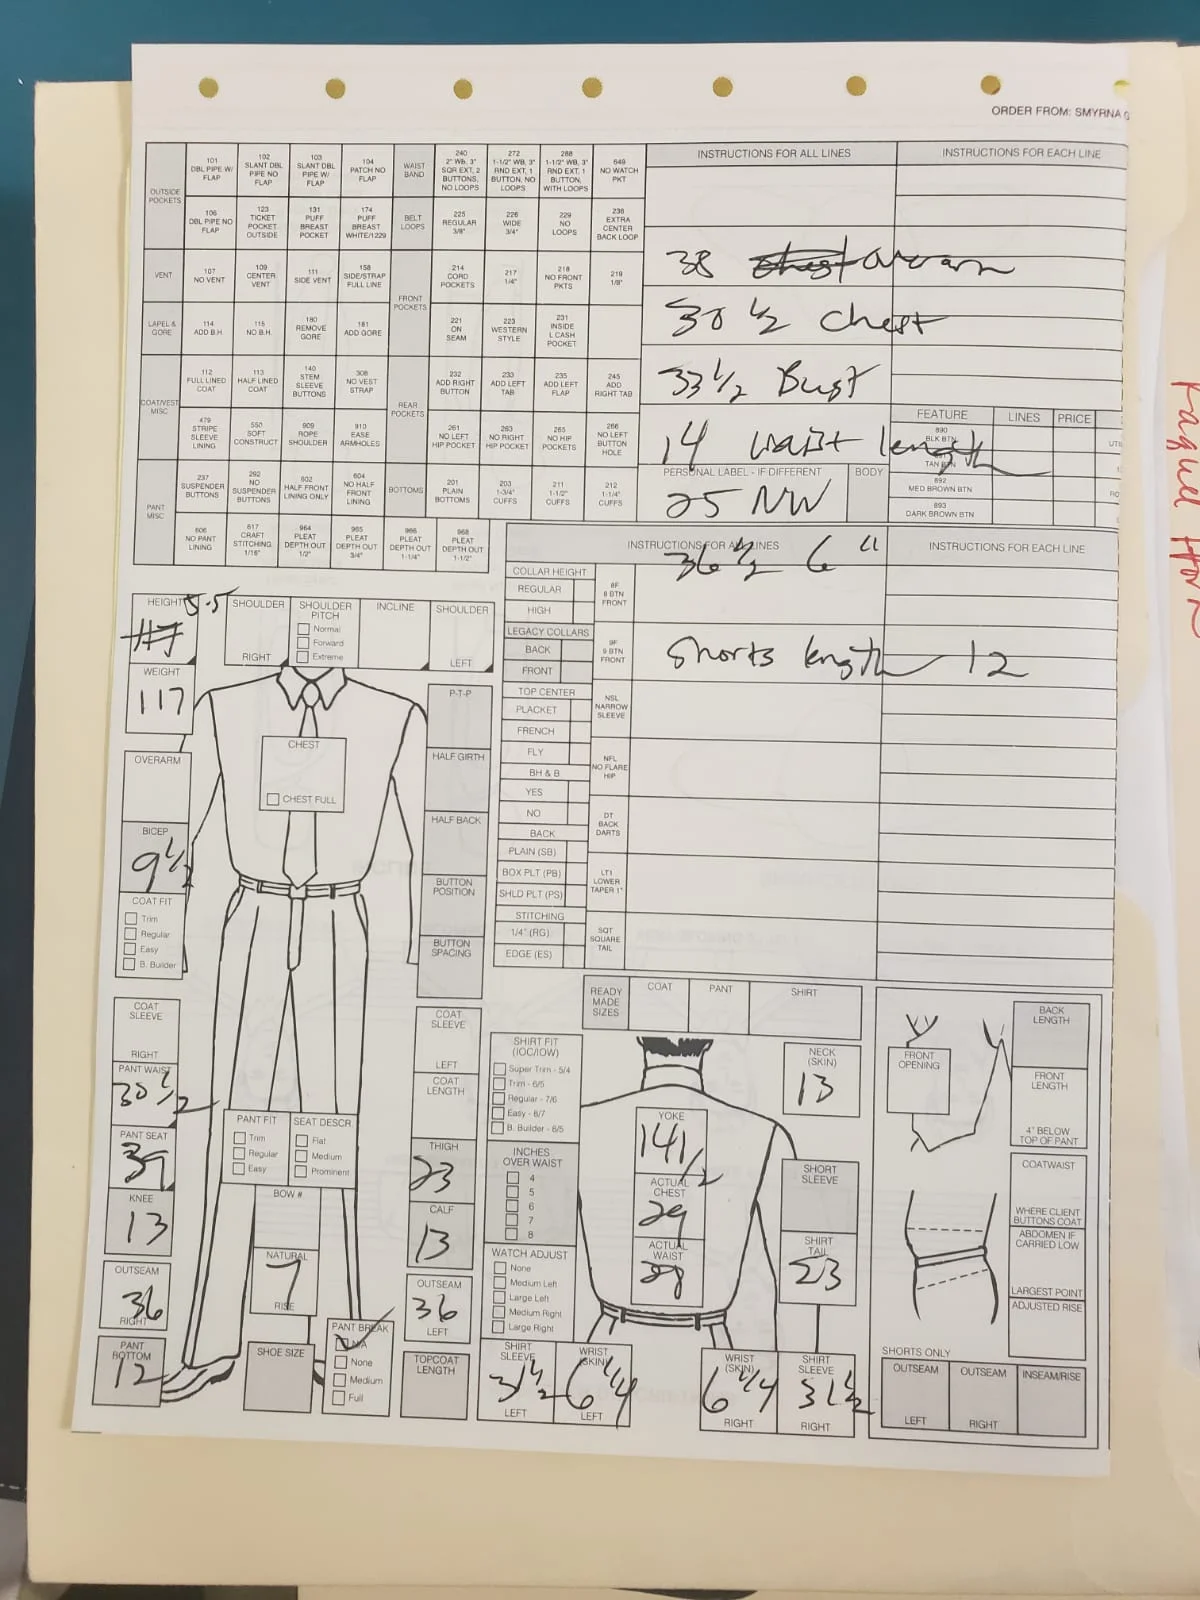 ORDER FROM: SMYRNA
OUTSIDE POCKETS
101 DBL PIPE W/ FLAP
102 SLANT DBL PIPE NO FLAP
103 SLANT DBL PIPE W/ FLAP
104 PATCH NO FLAP
WAIST BAND
240 2" WB, 3" SQR EXT, 2 BUTTONS, NO LOOPS
272 1-1/2" WB, 3" RND EXT, 1 BUTTON, NO LOOPS
288 1-1/2" WB, 3" RND EXT, 1 BUTTON, WITH LOOPS
649 NO WATCH PKT
106 DBL PIPE NO FLAP
123 TICKET POCKET OUTSIDE
131 PUFF BREAST POCKET
174 PUFF BREAST WHITE/1229
BELT LOOPS
225 REGULAR 3/8"
226 WIDE 3/4"
229 NO LOOPS
236 EXTRA CENTER BACK LOOP
VENT
107 NO VENT
109 CENTER VENT
111 SIDE VENT
158 SIDE/STRAP FULL LINE
FRONT POCKETS
214 CORD POCKETS
217 1/4"
218 NO FRONT PKTS
219 1/8"
LAPEL & GORE
114 ADD B.H.
115 NO B.H.
180 REMOVE GORE
181 ADD GORE
221 ON SEAM
223 WESTERN STYLE
231 INSIDE L CASH POCKET
COAT/VEST MISC
112 FULL LINED COAT
113 HALF LINED COAT
140 STEM SLEEVE BUTTONS
308 NO VEST STRAP
REAR POCKETS
232 ADD RIGHT BUTTON
233 ADD LEFT TAB
235 ADD LEFT FLAP
245 ADD RIGHT TAB
479 STRIPE SLEEVE LINING
550 SOFT CONSTRUCT
909 ROPE SHOULDER
910 EASE ARMHOLES
261 NO LEFT HIP POCKET
263 NO RIGHT HIP POCKET
265 NO HIP POCKETS
266 NO LEFT BUTTON HOLE
PANT MISC
237 SUSPENDER BUTTONS
292 NO SUSPENDER BUTTONS
602 HALF FRONT LINING ONLY
604 NO HALF FRONT LINING
BOTTOMS
201 PLAIN BOTTOMS
203 1-3/4" CUFFS
211 1-1/2" CUFFS
212 1-1/4" CUFFS
606 NO PANT LINING
617 CRAFT STITCHING 1/16"
964 PLEAT DEPTH OUT 1/2"
965 PLEAT DEPTH OUT 3/4"
966 PLEAT DEPTH OUT 1-1/4"
968 PLEAT DEPTH OUT 1-1/2"
INSTRUCTIONS FOR ALL LINES
INSTRUCTIONS FOR EACH LINE
38 chest overarm
30 1/2 chest
33 1/2 Bust
14 waist length
FEATURE LINES PRICE
890 BLK BTN
891 TAN BTN
892 MED BROWN BTN
893 DARK BROWN BTN
PERSONAL LABEL - IF DIFFERENT
BODY
25 NW
INSTRUCTIONS FOR ALL LINES
INSTRUCTIONS FOR EACH LINE
36 1/2 6"
Shorts length - 12
COLLAR HEIGHT
REGULAR
HIGH
LEGACY COLLARS
BACK
FRONT
TOP CENTER
PLACKET
FRENCH
FLY
BH & B
YES
NO
BACK
PLAIN (SB)
BOX PLT (PB)
SHLD PLT (PS)
STITCHING
1/4" (RG)
EDGE (ES)
8F 8 BTN FRONT
9F 9 BTN FRONT
NSL NARROW SLEEVE
NFL NO FLARE HIP
DT BACK DARTS
LT1 LOWER TAPER 1"
SQT SQUARE TAIL
HEIGHT 5-5
WEIGHT
117
SHOULDER RIGHT
SHOULDER PITCH
Normal
Forward
Extreme
INCLINE
SHOULDER LEFT
OVERARM
BICEP
9 1/2
COAT FIT
Trim
Regular
Easy
B. Builder
CHEST
CHEST FULL
P-T-P
HALF GIRTH
HALF BACK
BUTTON POSITION
BUTTON SPACING
COAT SLEEVE RIGHT
PANT WAIST
30 1/2
PANT SEAT
37
KNEE
13
OUTSEAM
36
RIGHT
PANT BOTTOM
12
PANT FIT
Trim
Regular
Easy
SEAT DESCR
Flat
Medium
Prominent
BOW #
NATURAL
7
RISE
SHOE SIZE
PANT BREAK
N/A
None
Medium
Full
COAT SLEEVE LEFT
COAT LENGTH
THIGH
23
CALF
13
OUTSEAM
36
LEFT
TOPCOAT LENGTH
SHIRT FIT (IOC/IOW)
Super Trim - 5/4
Trim - 6/5
Regular - 7/6
Easy - 8/7
B. Builder - 6/5
INCHES OVER WAIST
4
5
6
7
8
WATCH ADJUST
None
Medium Left
Large Left
Medium Right
Large Right
SHIRT SLEEVE
31 1/2
LEFT
WRIST (SKIN)
6 1/4
LEFT
READY MADE SIZES
COAT
PANT
SHIRT
NECK (SKIN)
13
YOKE
14 1/2
ACTUAL CHEST
29
ACTUAL WAIST
28
SHORT SLEEVE
SHIRT TAIL
23
WRIST (SKIN)
6 1/4
RIGHT
SHIRT SLEEVE
31 1/2
RIGHT
FRONT OPENING
BACK LENGTH
FRONT LENGTH
4" BELOW TOP OF PANT
COATWAIST
WHERE CLIENT BUTTONS COAT
ABDOMEN IF CARRIED LOW
LARGEST POINT
ADJUSTED RISE
SHORTS ONLY
OUTSEAM LEFT
OUTSEAM RIGHT
INSEAM/RISE